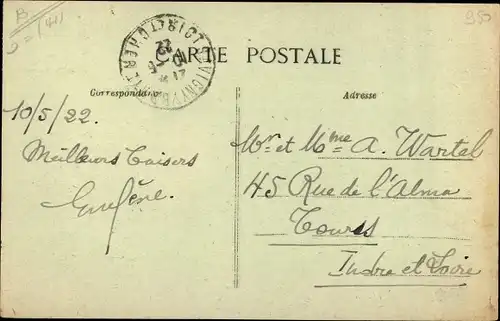 B
(41)
950
CARTE POSTALE
Correspondance
Adresse
10/5/22.
Meilleurs baisers
Eugène.
Mr et Mme A. Wartel
45 Rue de l'Alma
Tours
Indre et Loire